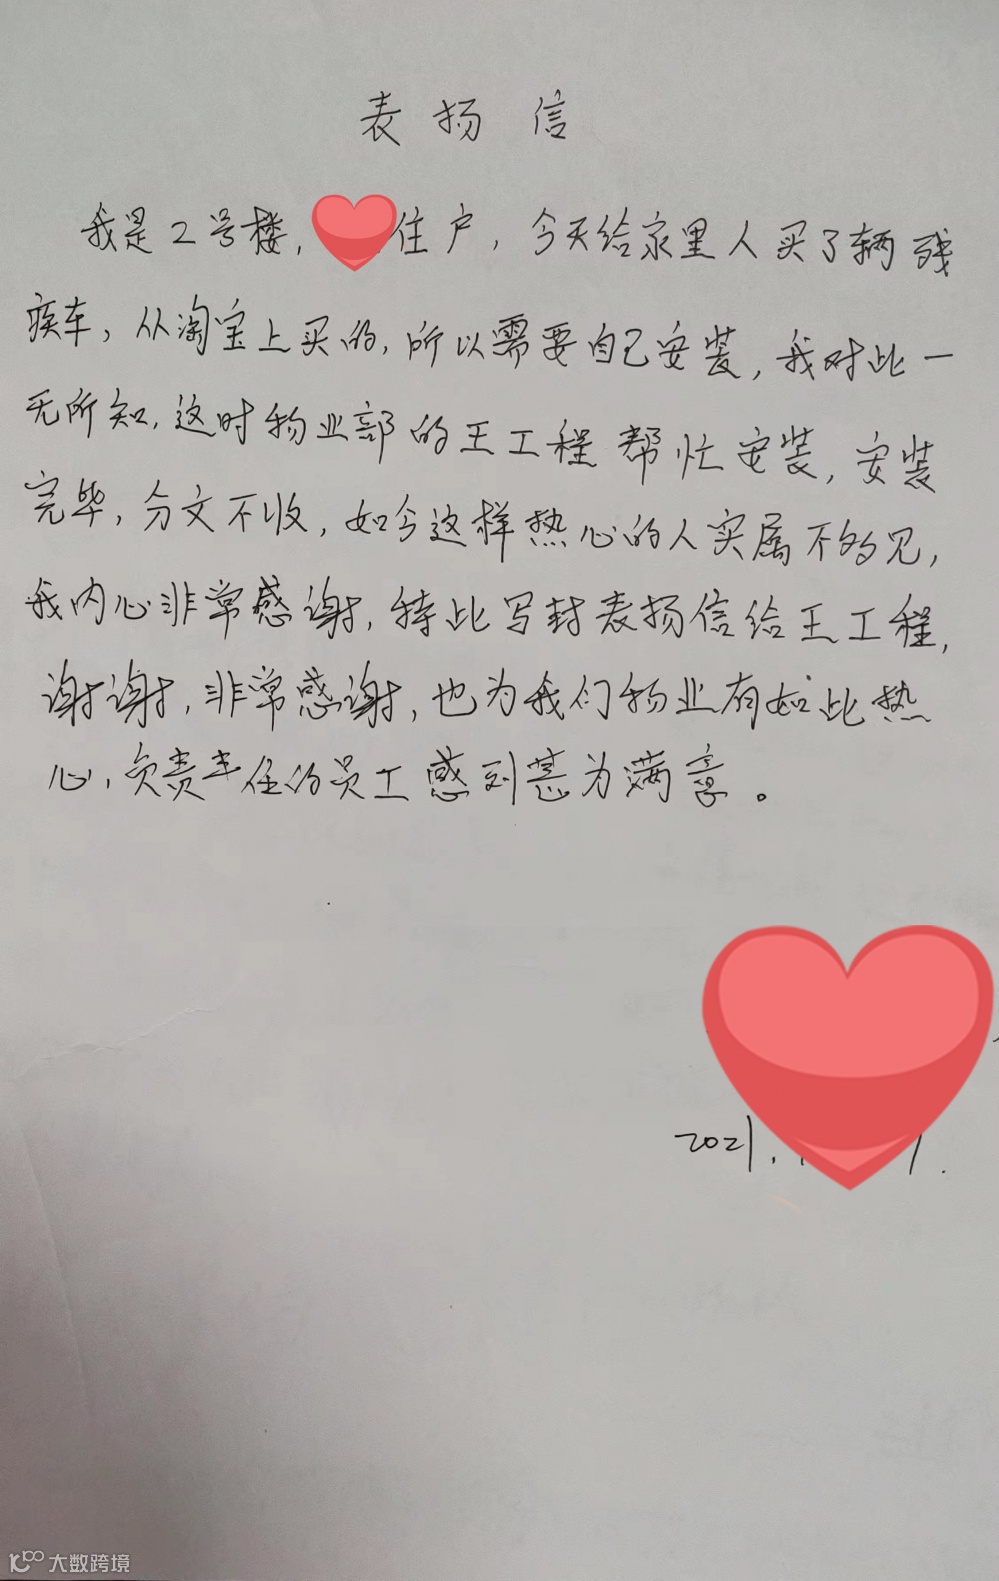 表扬信
我是2号楼,住户,今天给家里人买了辆残
疾车,从淘宝上买的,所以需要自己安装,我对此一
无所知,这时物业部的王工程帮忙安装,安装
完毕,分文不收,如今这样热心的人实属不多见,
我内心非常感谢,特此写封表扬信给王工程,
谢谢,非常感谢,也为我们物业有如此热
心,负责任的员工感到甚为满意。
2021.
大数跨境